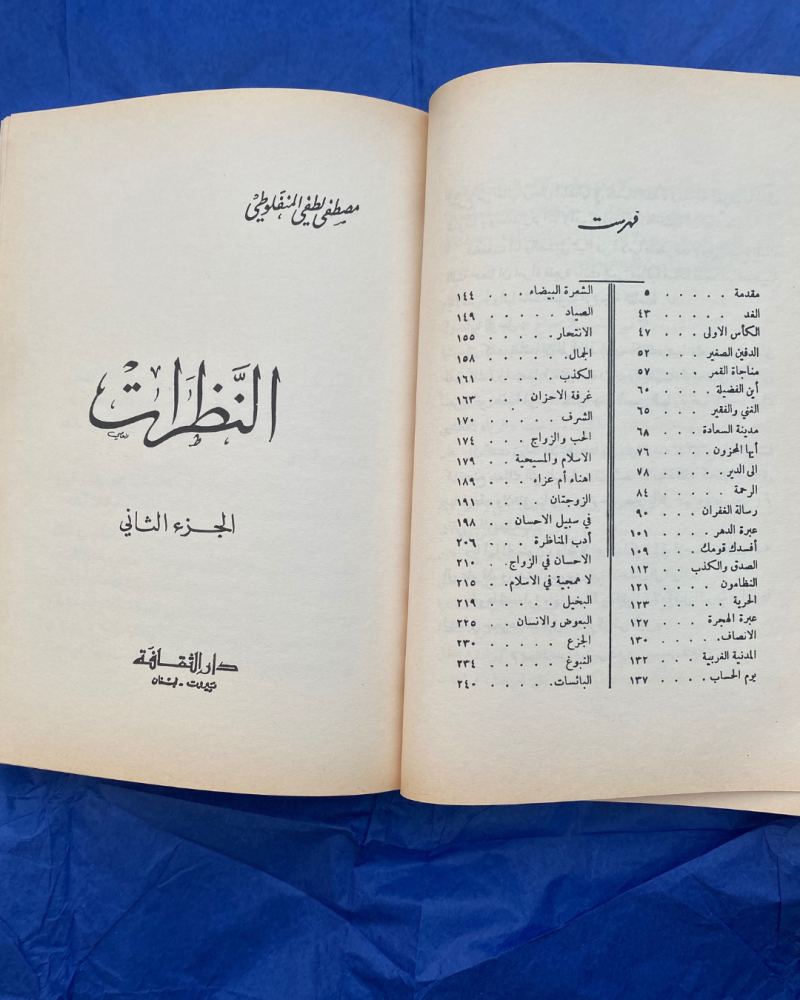 مصطفى لطفي المنفلوطي
النظرات
الجزء الثاني
دار الثقافة
بيروت - لبنان
فهرست
مقدمة . . . . . ٥
الغد . . . . . ٤٣
الكأس الاولى . . ٤٧
الدفين الصغير . . . ٥٢
مناجاة القمر . . . ٥٧
أين الفضيلة . . . . ٦٠
الغني والفقير . . . ٦٥
مدينة السعادة . . . ٦٨
أيها المحزون . . . . ٧٦
الى الدير . . . . . ٧٨
الرحمة . . . . . ٨٤
رسالة الغفران . . . ٩٠
عبرة الدهر . . . . ١٠١
أفسدك قومك . . . ١٠٩
الصدق والكذب . . ١١٢
النظامون . . . . ١٢١
الحرية . . . . . ١٢٣
عبرة الهجرة . . . ١٢٧
الانصاف . . . . . ١٣٠
المدنية الغربية . . . ١٣٢
يوم الحساب . . . . ١٣٧
الشعرة البيضاء . . . ١٤٤
الصياد . . . . . ١٤٩
الانتحار . . . . . ١٥٥
الجمال . . . . . ١٥٨
الكذب . . . . . ١٦١
غرفة الاحزان . . . ١٦٣
الشرف . . . . . ١٧٠
الحب والزواج . . . ١٧٤
الاسلام والمسيحية . . ١٧٩
اهناء أم عزاء . . . ١٨٩
الزوجتان . . . . ١٩١
في سبيل الاحسان . . ١٩٨
أدب المناظرة . . . ٢٠٦
الاحسان في الزواج . . ٢١٠
لا همجية في الاسلام . . ٢١٥
البخيل . . . . . ٢١٩
البعوض والانسان . . ٢٢٥
الجزع . . . . . ٢٣٠
النبوغ . . . . . ٢٣٤
البائسات . . . . . ٢٤٠